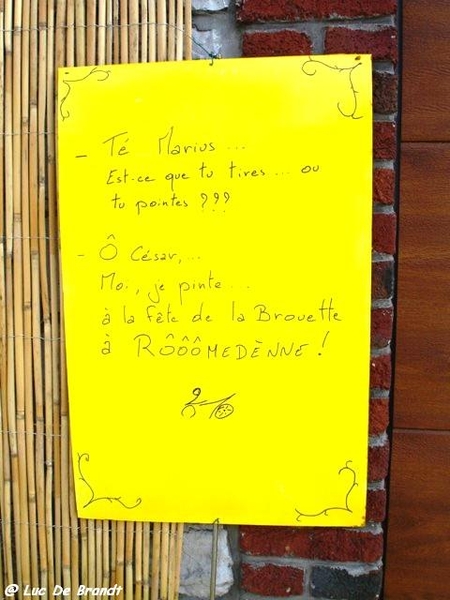 - Té Marius...
Est-ce que tu tires... ou
tu pointes ???
- Ô César,...
Moi, je pinte...
à la fête de la Brouette
à RÔÔÔMEDÈNNE !
@ Luc De Brandt